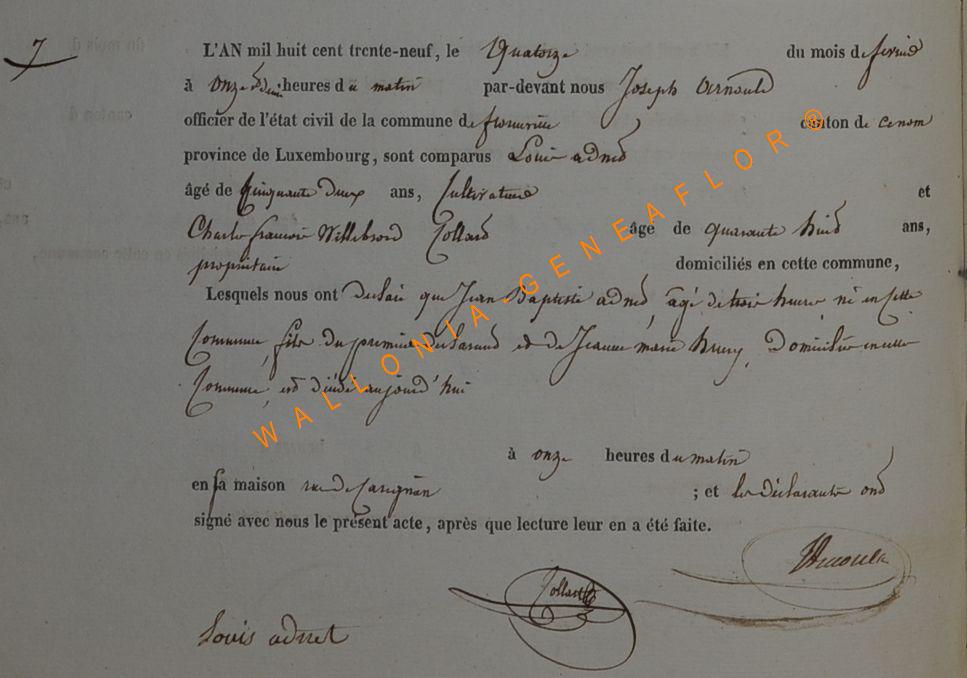 7
L'AN mil huit cent trente-neuf, le Quatorze du mois de fevrier
à onze & demi heures du matin par-devant nous Joseph Arnould
officier de l'état civil de la commune de florenville canton de idem
province de Luxembourg, sont comparus Louis adnet
âgé de Cinquante deux ans, Cultivateur et
Charles francois Willebrord Collard âgé de quarante huit ans,
propriétaire domiciliés en cette commune,
Lesquels nous ont déclaré que Jean Baptiste adnet, âgé de trois heures né en cette
Commune, fils du premier declarant et de Jeanne marie henry, Domiciliée en cette
Commune, est décédé aujourd'hui
à onze heures du matin
en sa maison rue de Carignan ; et les déclarants ont
signé avec nous le présent acte, après que lecture leur en a été faite.
Arnould
Collard
Louis adnet
WALLONIA-GENEAFLOR ®